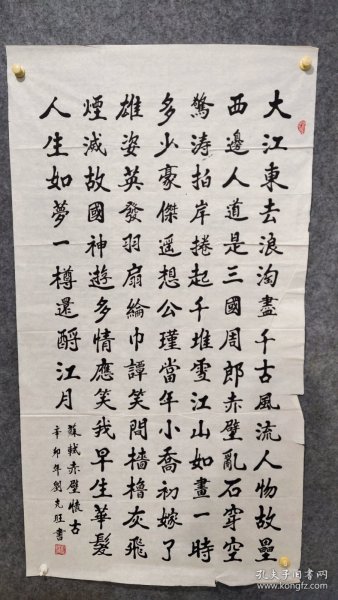 大江東去浪淘盡千古風流人物故壘
西邊人道是三國周郎赤壁亂石穿空
驚濤拍岸捲起千堆雪江山如畫一時
多少豪傑遥想公瑾當年小喬初嫁了
雄姿英發羽扇綸巾譚笑間檣櫓灰飛
煙滅故國神遊多情應笑我早生華髮
人生如夢一樽還酹江月
蘇軾赤壁懷古
辛卯年劉克旺書
孔夫子旧书网
www.kongfz.com